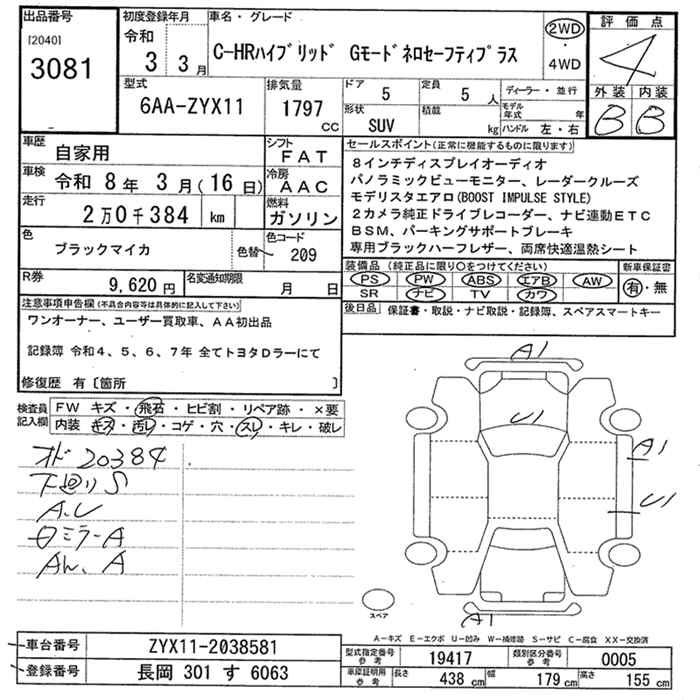 出品番号
[2040]
3081
初度登録年月
令和
3 3月
車名・グレード
C-HRハイブリッド Gモードネロセーフティプラス
2WD
・
4WD
評価点
4
外装 内装
B B
型式
6AA-ZYX11
排気量
1797
cc
ドア
5
定員
5 人
形状
SUV
積載
kg
ディーラー・並行
モデル年式 年
ハンドル 左・右
車歴
自家用
シフト
FAT
車検
令和 8年 3月(16日)
冷房
AAC
走行
2万0千384 km
燃料
ガソリン
色
ブラックマイカ
色替
色コード
209
R券
9,620円
名変通知期限
月 日
セールスポイント(正常に機能するものに限ります)
8インチディスプレイオーディオ
パノラミックビューモニター、レーダークルーズ
モデリスタエアロ(BOOST IMPULSE STYLE)
2カメラ純正ドライブレコーダー、ナビ連動ETC
BSM、パーキングサポートブレーキ
専用ブラックハーフレザー、両席快適温熱シート
装備品(純正品に限り○をつけてください)
PS PW ABS エアB AW
SR ナビ TV カワ
新車保証書
有・無
後日品 保証書・取説・ナビ取説・記録簿、スペアスマートキー
注意事項申告欄(不具合内容等は具体的に記入して下さい)
ワンオーナー、ユーザー買取車、AA初出品
記録簿 令和4、5、6、7年 全てトヨタDラーにて
修復歴 有〔箇所 〕
検査員記入欄
FW キズ・飛石・ヒビ割・リペア跡・×要
内装 キズ・汚レ・コゲ・穴・スレ・キレ・破レ
オド20384
下廻りS
A.U
ミラーA
A
A1
U1
A1
U1
A1
スペア
A-キズ E-エクボ U-凹み W-補修跡 S-サビ C-腐食 XX-交換済
車台番号 ZYX11-2038581
登録番号 長岡 301 す 6063
型式指定番号
参考
19417
類別区分番号
参考
0005
車庫証明用
参考
長さ
438 cm
幅
179 cm
高さ
155 cm